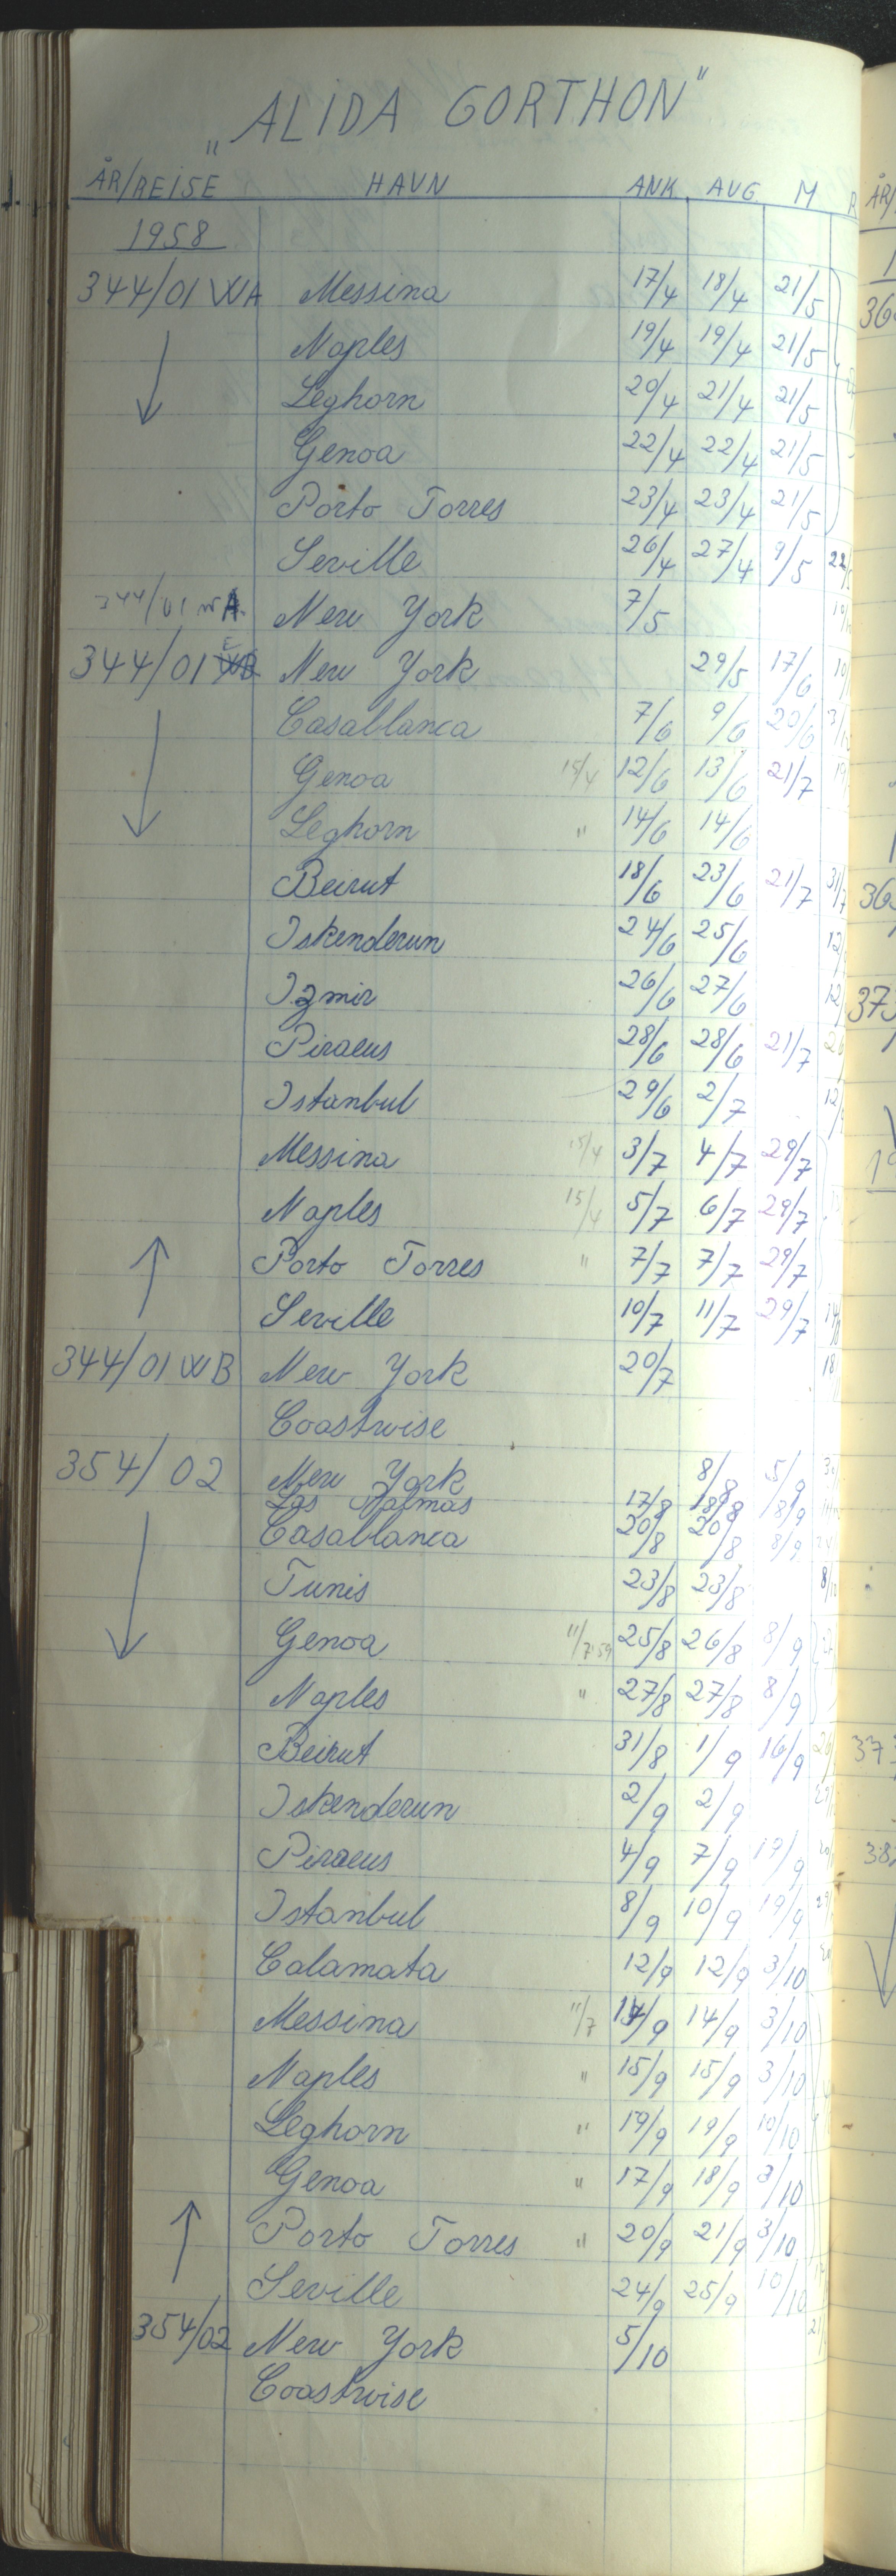 "ALIDA GORTHON"
ÅR/REISE HAVN ANK. AUG. M R
1958
344/01 WA Messina 17/4 18/4 21/5
Naples 19/4 19/4 21/5
Leghorn 20/4 21/4 21/5
Genoa 22/4 22/4 21/5
Porto Torres 23/4 23/4 21/5
Seville 26/4 27/4 9/5
344/01 WA. New York 7/5
344/01 E New York 29/5 17/6
Casablanca 7/6 9/6 20/6
Genoa 15/4 12/6 13/6 21/7
Leghorn " 14/6 14/6
Beirut 18/6 23/6 21/7 31/7
Iskenderun 24/6 25/6
Izmir 26/6 27/6
Piraeus 28/6 28/6 21/7
Istanbul 29/6 2/7
Messina 15/4 3/7 4/7 29/7
Naples 15/4 5/7 6/7 29/7
Porto Torres " 7/7 7/7 29/7
Seville 10/7 11/7 29/7
344/01 WB New York 20/7
Coastwise
354/02 New York 8/8 5/9
Las Palmas 17/8 18/8 8/9
Casablanca 20/8 20/8 8/9
Tunis 23/8 23/8
Genoa 11/7'59 25/8 26/8 8/9
Naples " 27/8 27/8 8/9
Beirut 31/8 1/9 16/9
Iskenderun 2/9 2/9
Piraeus 4/9 7/9 19/9
Istanbul 8/9 10/9 19/9
Calamata 12/9 12/9 3/10
Messina 11/7 14/9 14/9 3/10
Naples " 15/9 15/9 3/10
Leghorn " 19/9 19/9 10/10
Genoa " 17/9 18/9 3/10
Porto Torres " 20/9 21/9 3/10
Seville 24/9 25/9 10/10
354/02 New York 5/10
Coastwise